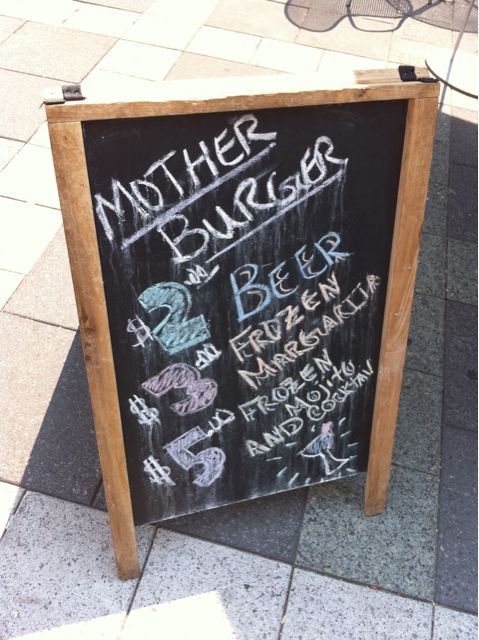 MOTHER
BURGER
$2.00 BEER
$3.00 FROZEN
MARGARITA
$5.00 FROZEN
MOJITO
AND COCKTAIL